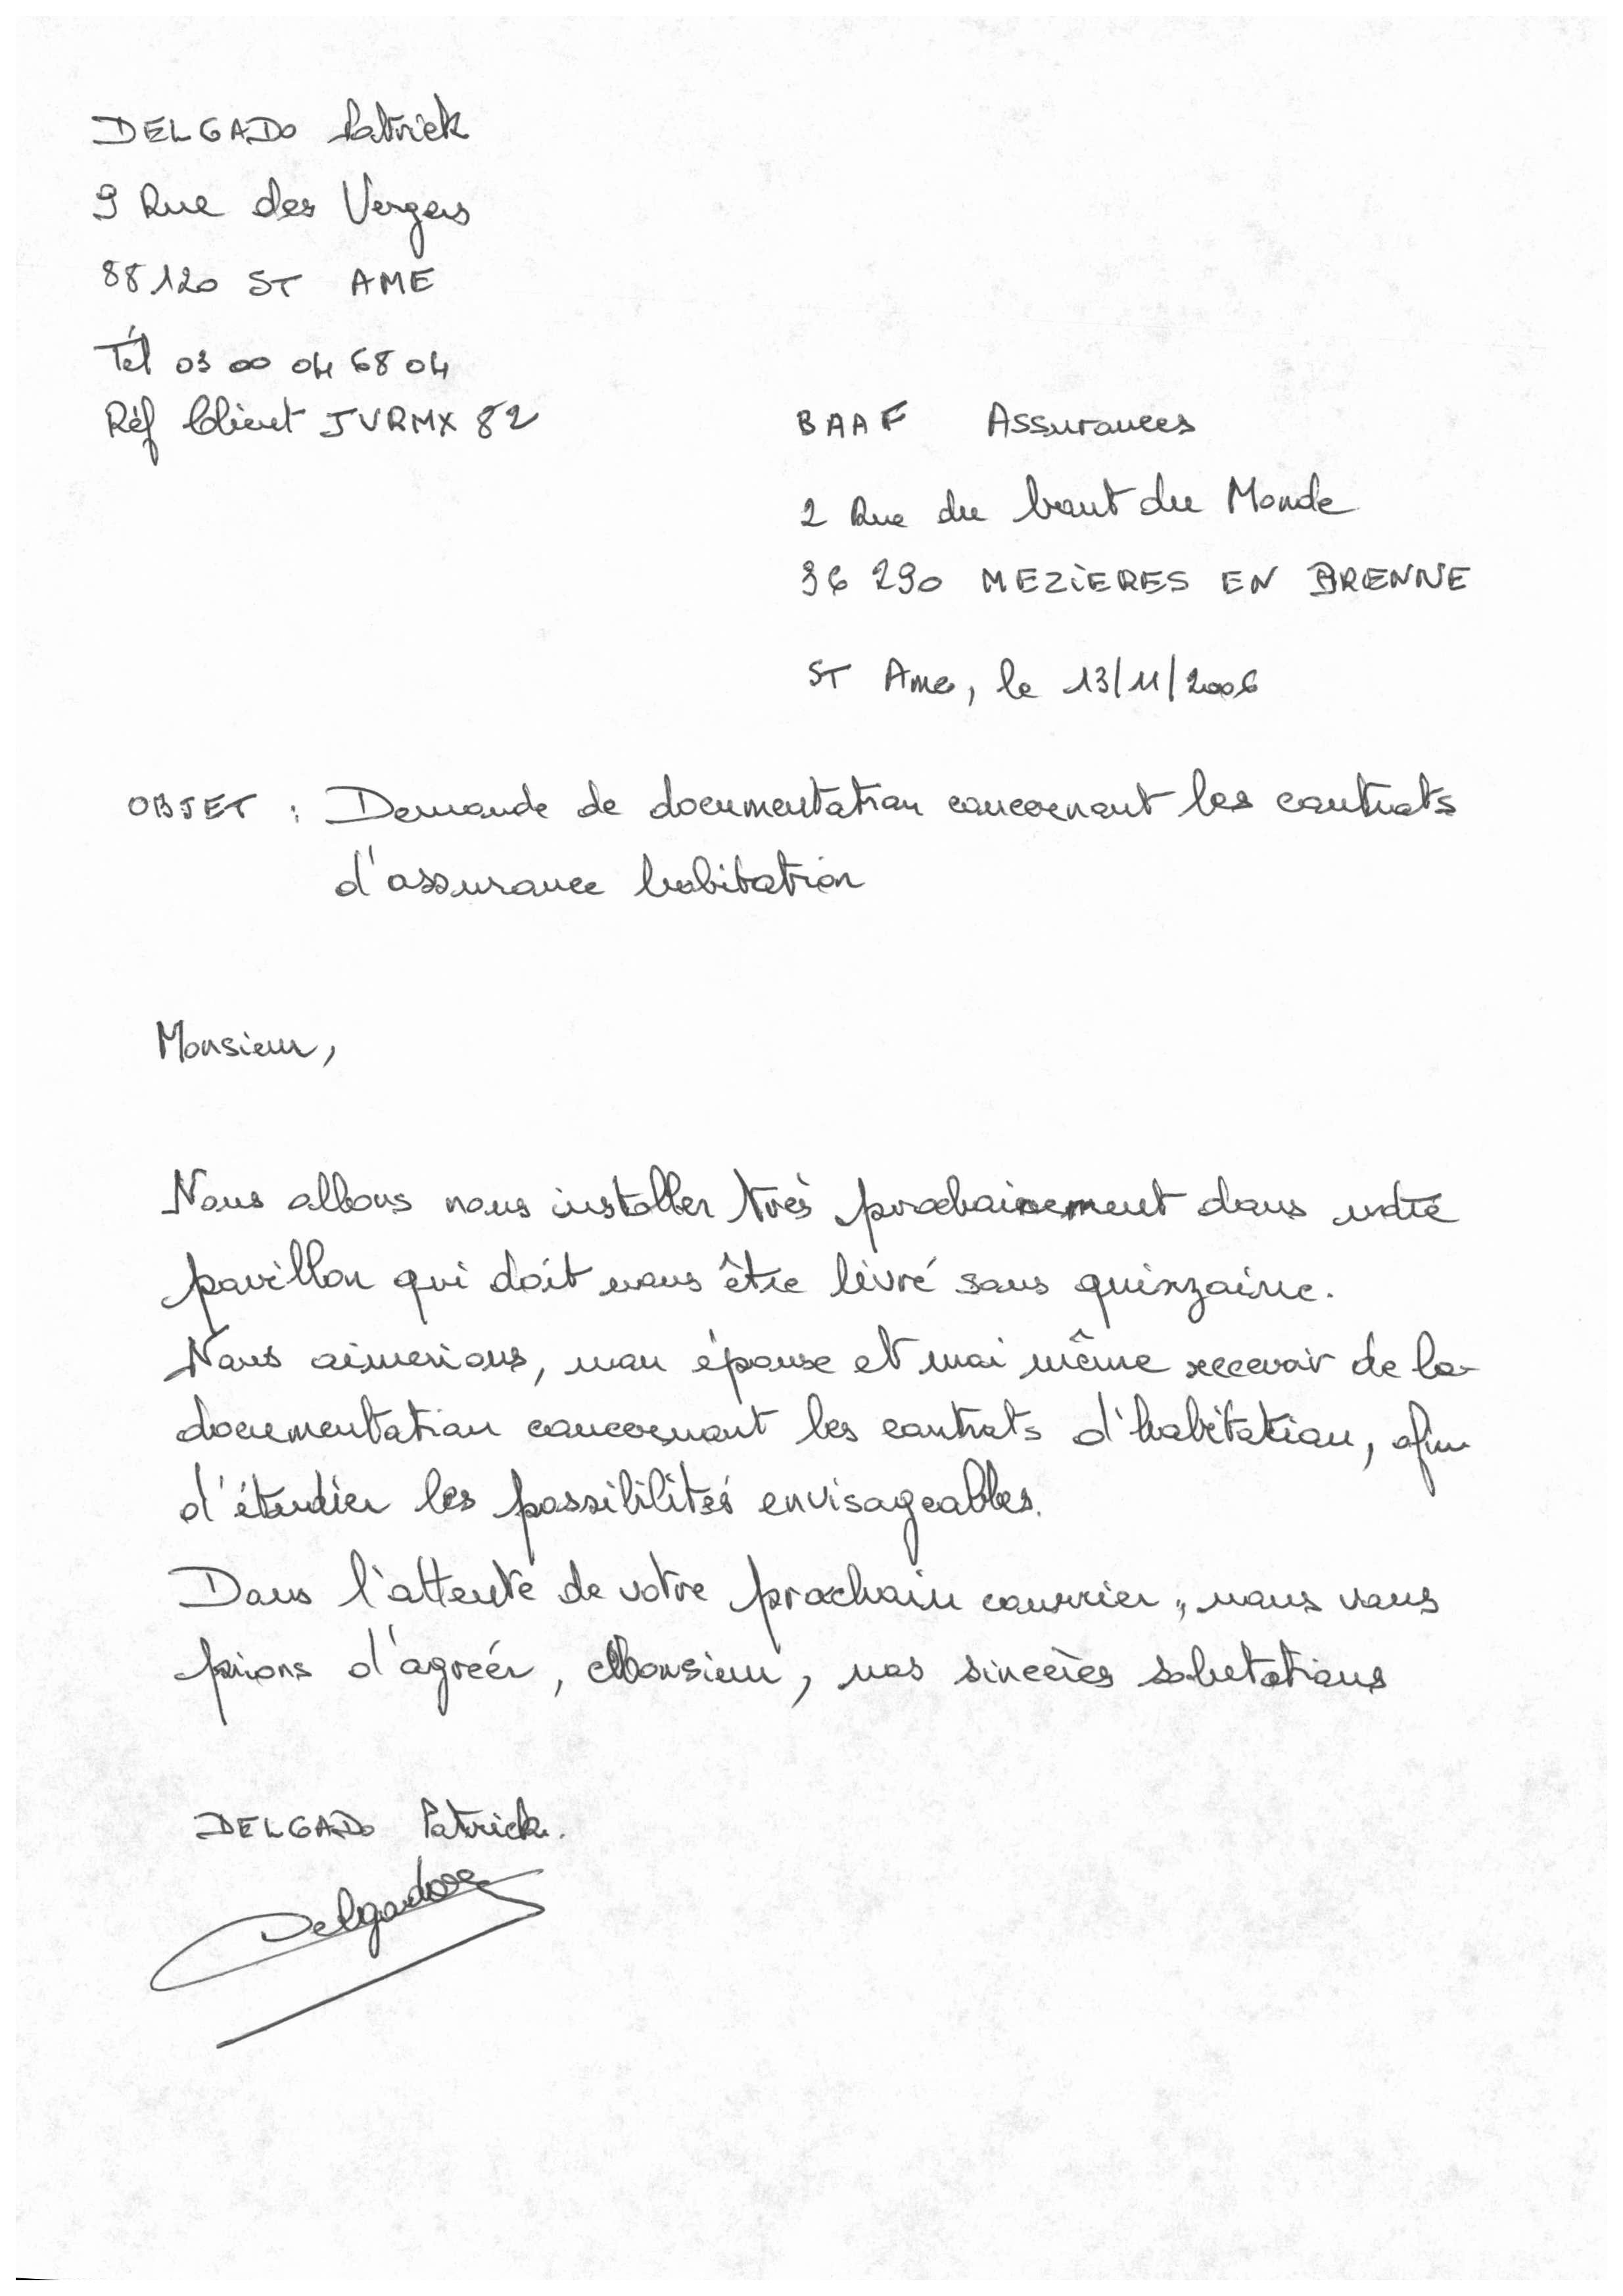 DELGADO Patrick
9 Rue des Vergers
88120 ST AME
Tél 03 00 04 68 04
Réf Client JVRMX 82
BAAF Assurances
2 Rue du haut du Monde
36 290 MEZIERES EN BRENNE
ST Ame, le 13/11/2006
OBJET : Demande de documentation concernant les contrats
d'assurance habitation
Monsieur,
Nous allons nous installer très prochainement dans notre
pavillon qui doit nous être livré sous quinzaine.
Nous aimerions, mon épouse et moi même recevoir de la
documentation concernant les contrats d'habitation, afin
d'étudier les possibilités envisageables.
Dans l'attente de votre prochain courrier, nous vous
prions d'agréer, Monsieur, nos sincères salutations
DELGADO Patrick.
Delgado